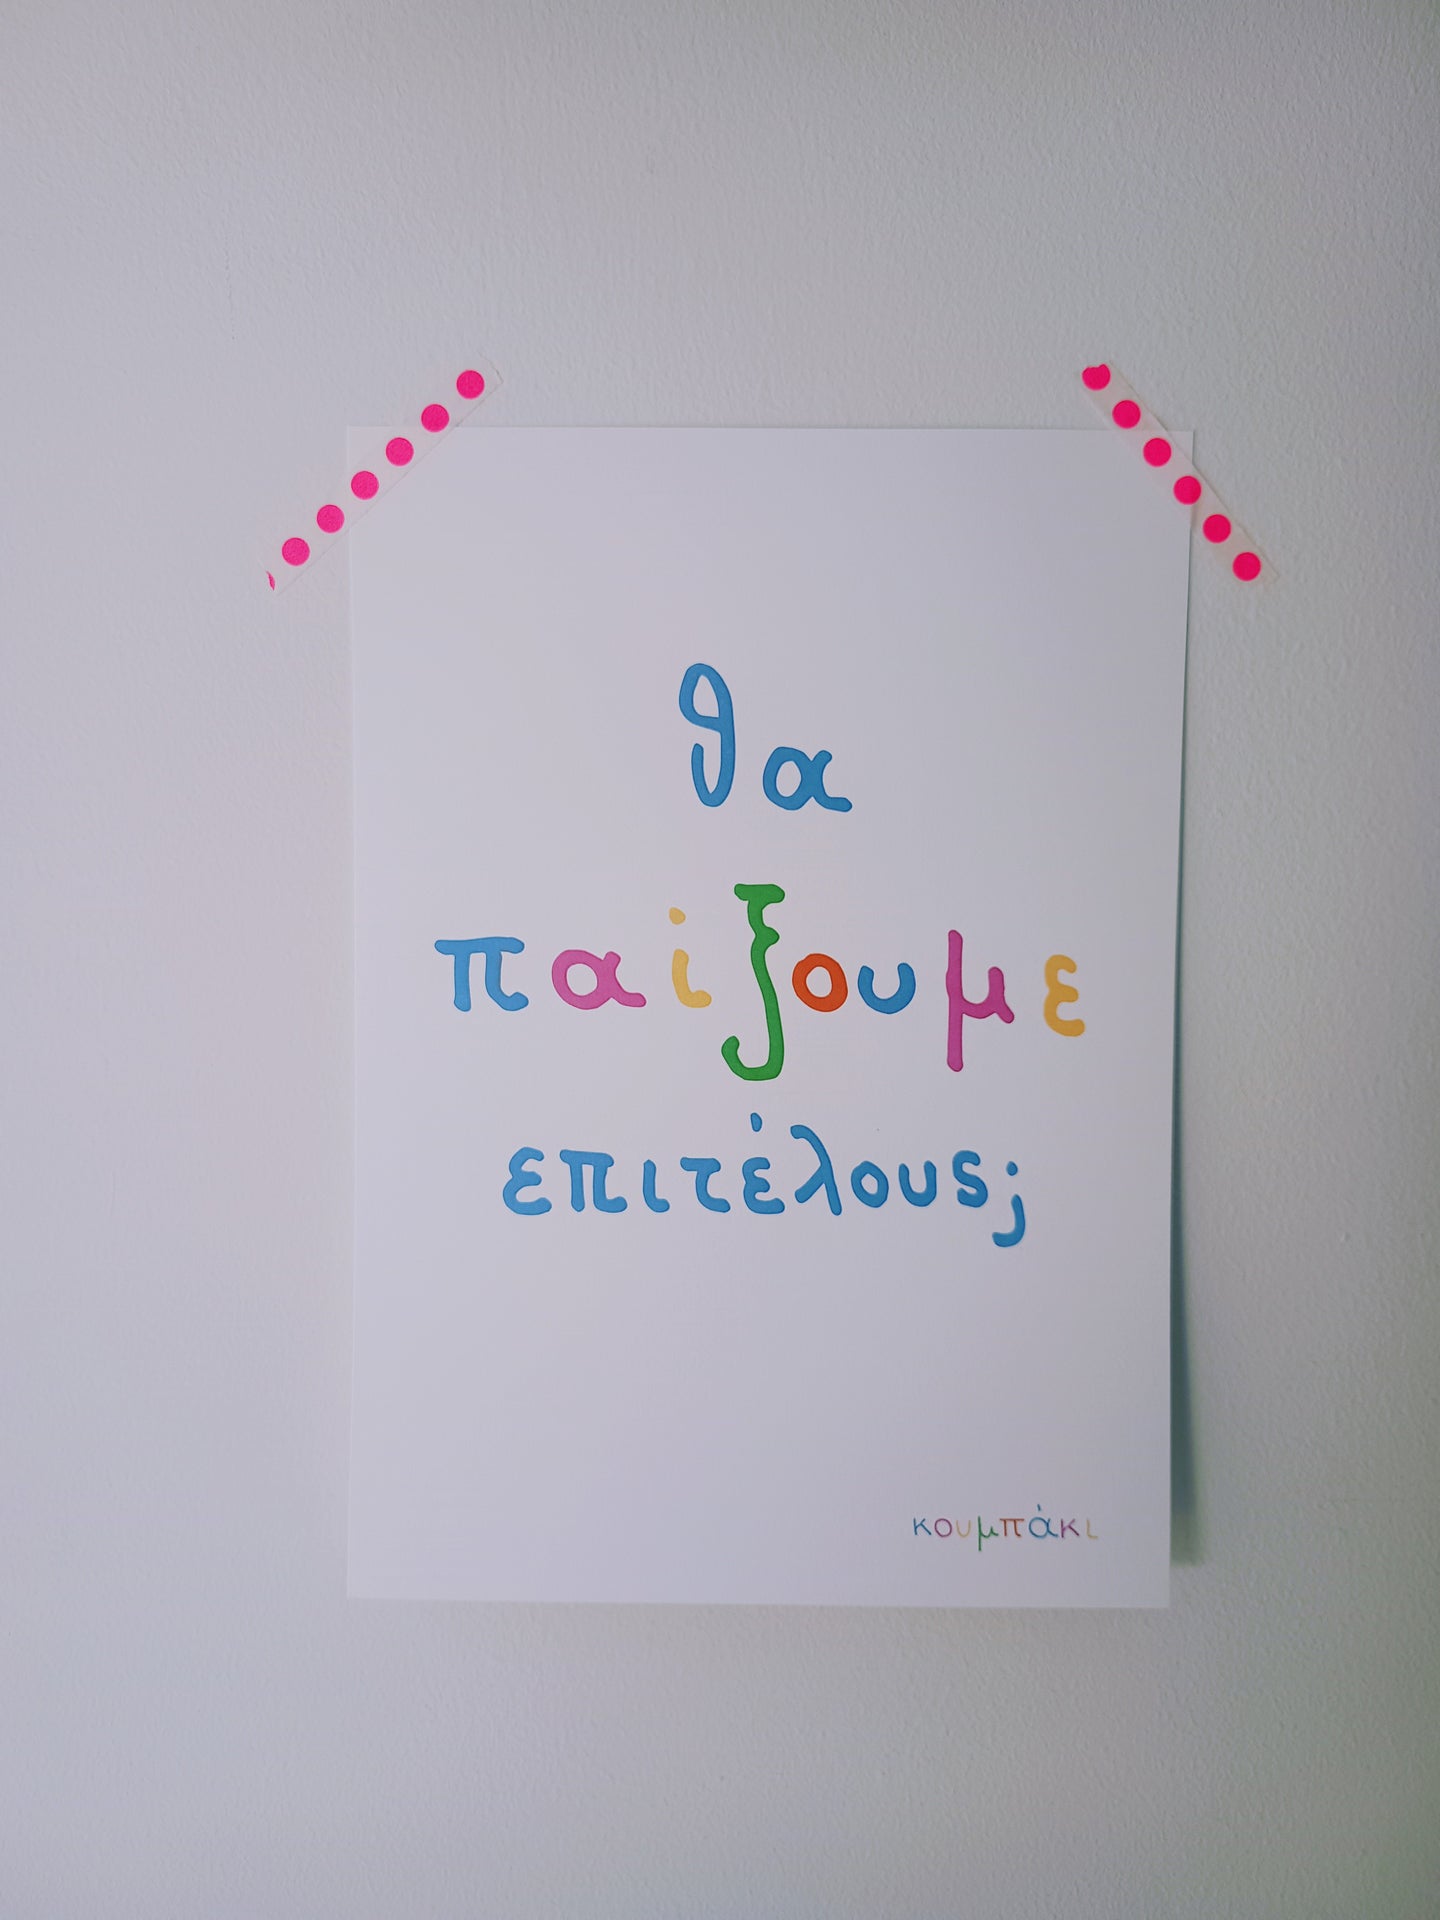 θα
παίξουμε
επιτέλους;
κουμπάκι